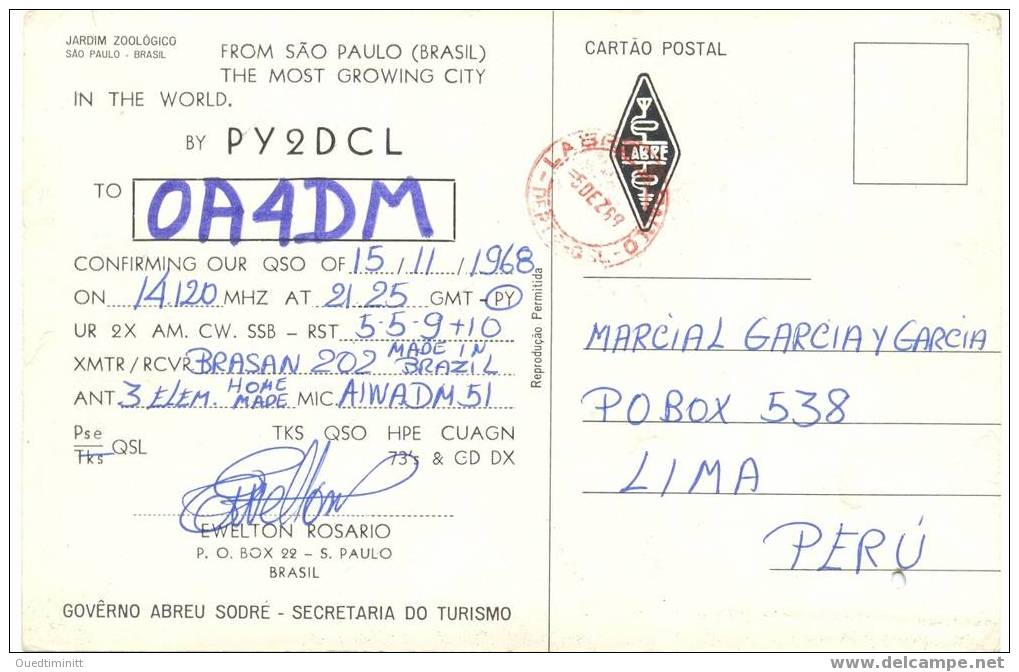 JARDIM ZOOLÓGICO
SÃO PAULO - BRASIL
FROM SÃO PAULO (BRASIL)
THE MOST GROWING CITY
IN THE WORLD.
BY PY2DCL
TO OA4DM
CONFIRMING OUR QSO OF 15/11/1968
ON 14120 MHZ AT 21.25 GMT - PY
UR 2X AM. CW. SSB - RST 5-5-9+10
XMTR/RCVR BRASAN 202 MADE IN BRAZIL
ANT. 3 ELEM. HOME MADE MIC. AIWADM51
Pse
Tks QSL
TKS QSO HPE CUAGN
73's & GD DX
Ewelton
EWELTON ROSARIO
P. O. BOX 22 - S. PAULO
BRASIL
GOVÊRNO ABREU SODRÉ - SECRETARIA DO TURISMO
Reprodução Permitida
CARTÃO POSTAL
LABRE
5DEZ68
MARCIAL GARCIA Y GARCIA
PO BOX 538
LIMA
PERÚ
Ouedtiminitt
www.delcampe.net